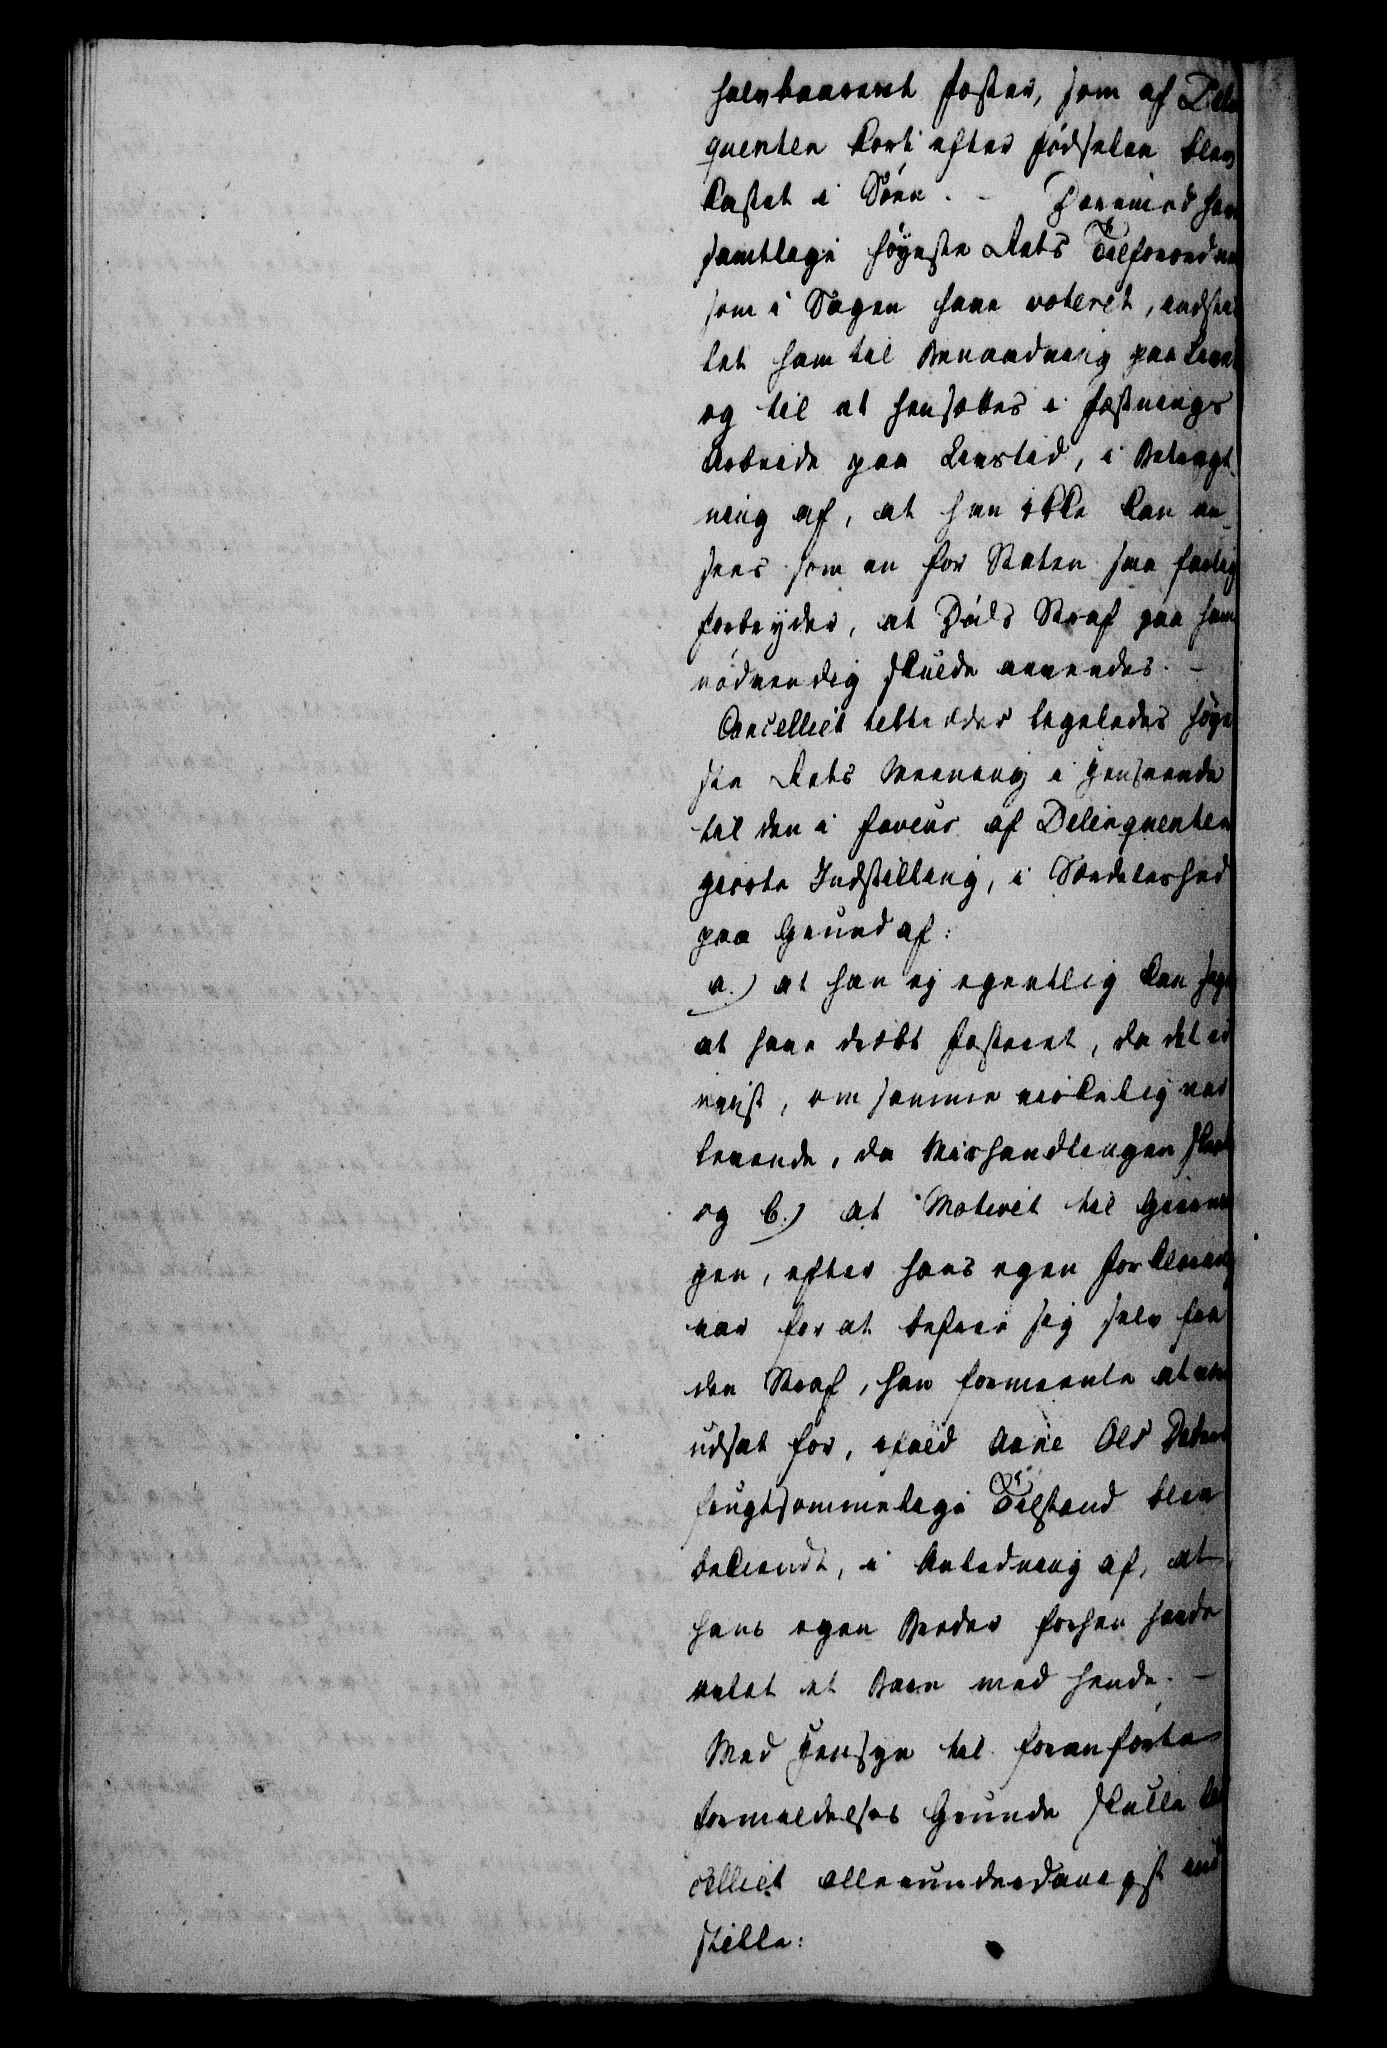 halvbaarent Foster, som af Delin
quenten kort efter Fødselen blev
kastet i Søen. - Derimod have
samtlige Høyeste Rets Tilforordnede
som i Sagen have voteret, indstil
let ham til Benaadning paa Livet
og til at hensættes i Fæstnings
Arbeide paa Livstid, i Betragt-
ning af, at han ikke kan an-
sees som en for Staten saa farlig
Forbryder, at Døds Straf paa ham
nødvendig skulde anvendes. -
Cancelliet tiltræder ligeledes Høye
ste Rets Meening i Henseende
til den i faveur af Delinquenten
giorte Indstilling, i Særdeleshed
paa Grund af:
a.) at han ej egentlig kan siges
at have dræbt Fosteret, da det er
uvist, om samme virkelig var
levende, da Mishandlingen skeede
og b.) at Motivet til Gierning
gen, efter hans egen Forklaring
var for at befrie sig selv fra
den Straf, han formeente at være
udsat for, ifald Anne Ols Datters
frugtsommelige Tilstand blev
bekiendt, i Anledning af, at
hans egen Broder forhen havde
avlet et Barn med hende. -
Med Hensyn til foranførte
Formildelses Grunde skulle Can
celliet allerunderdanigst ind
stille: